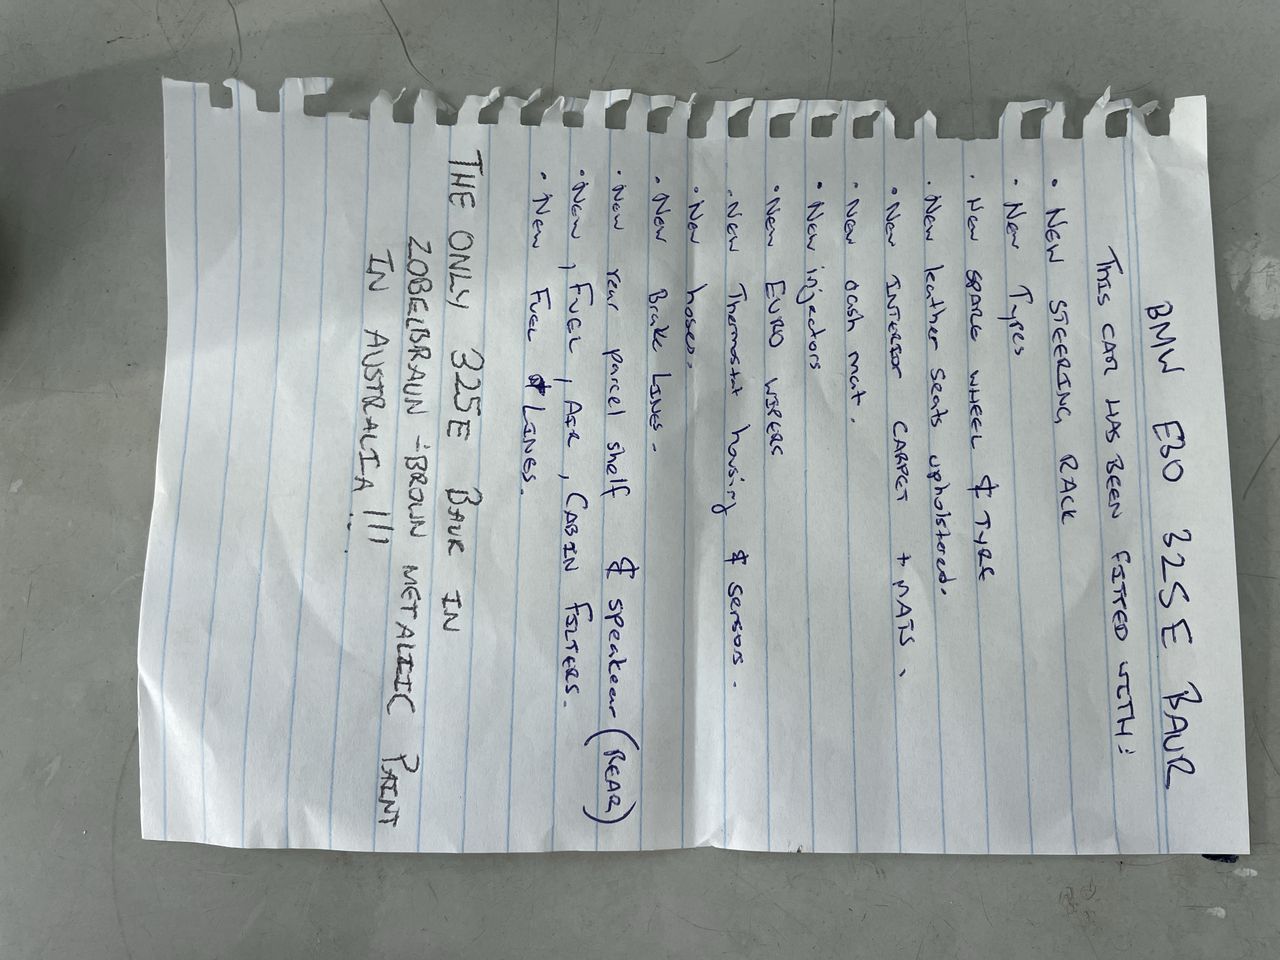 BMW E30 325E BAUR
THIS CAR HAS BEEN FITTED WITH:
• NEW STEERING RACK
• New Tyres
• New SPARE WHEEL & TYRE
• New leather seats upholstered.
• New INTERIOR CARPET + MATS.
• New dash mat.
• New injectors
• New EURO WIPERS
• New Thermostat housing & sensors.
• New hoses.
• New Brake LINES.
• New rear parcel shelf & speaker (REAR)
• New, FUEL, AIR, CABIN FILTERS.
• New FUEL LINES.
THE ONLY 325E BAUR IN
ZOBELBRAUN - BROWN METALIC PAINT
IN AUSTRALIA!!!